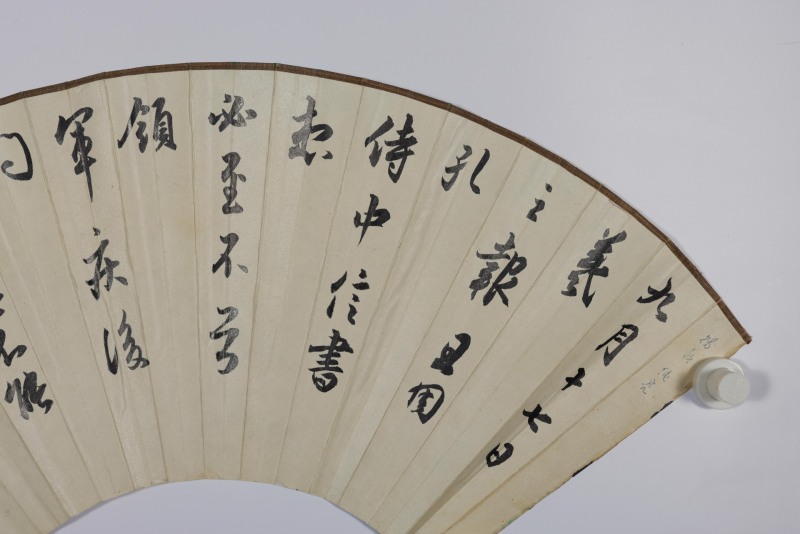 九月十七日
羲
之報且因
孔
侍中信書
想
必至不知
領
軍疾後